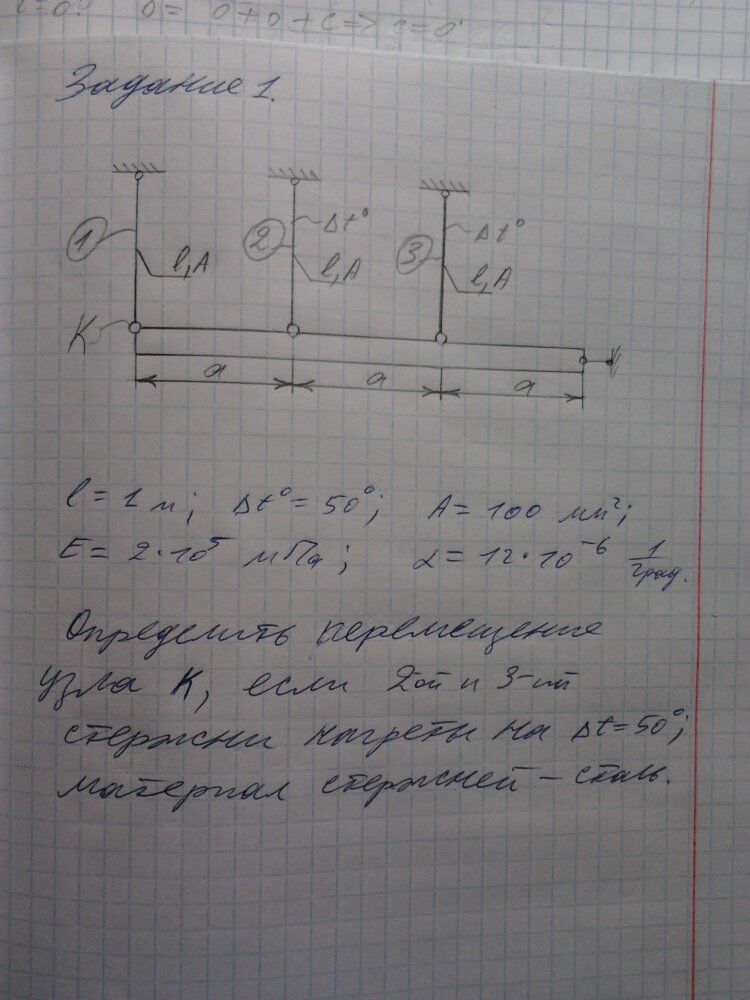 l=0. 0= 0+0+c=>c=0
Задание 1.
1 l,A
2 Δt° l,A
3 Δt° l,A
K
a a a
l = 1 м; Δt° = 50°; A = 100 мм²;
E = 2·10⁵ мПа; α = 12·10⁻⁶ 1/град.
Определить перемещение
узла К, если 2ой и 3-ий
стержни нагреты на Δt=50°;
материал стержней – сталь.